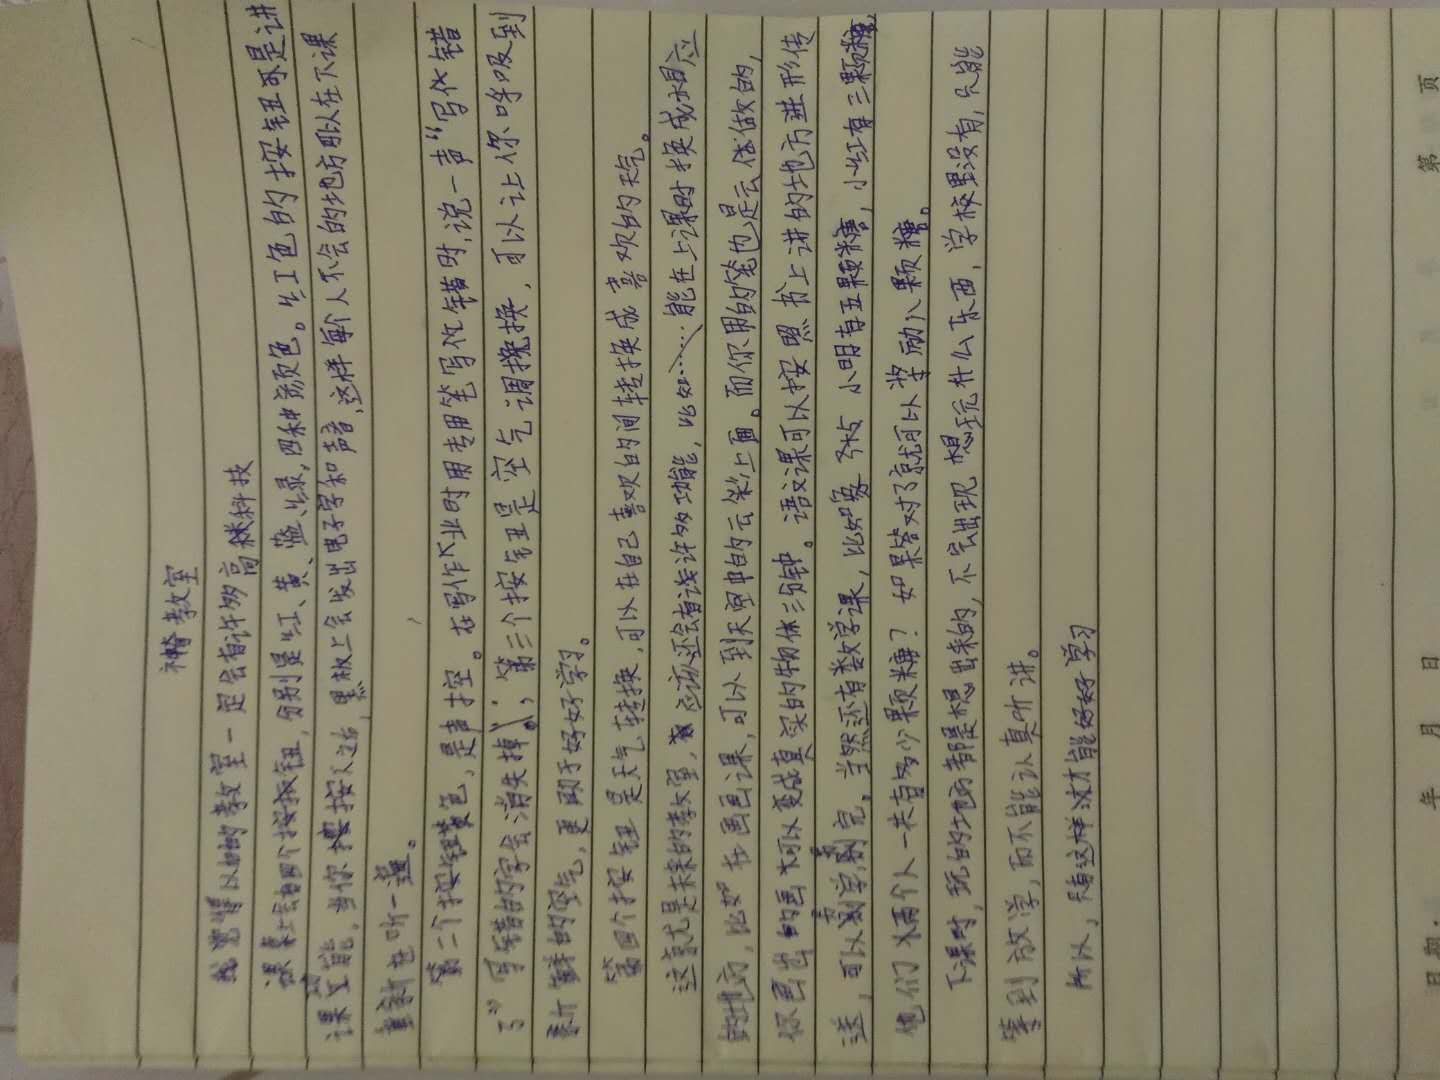 神替教室
我觉得以后的教室一定会有许多高科技
课桌上会有四个按钮,分别是红、黄、蓝、绿,四种颜色。红色的按钮可是讲
课功能,当你按下去,黑板上会发出电子字和声音,这样每个人不会的地方可以在下课
重新在听一遍。
第二个按钮黄色,是声控。在写作业时用专用笔写作错时,说一声“写作错
了”写错的字会消失掉;第三个按钮是空气调换,可以让你呼吸到
新鲜的空气,更助于好好学习。
第四个按钮是天气转换,可以在自己喜欢的间转换成喜欢的天气。
这就是未来的教室,应该还会有许多功能,比如……能在上课时换成相应
的地方,比如在画画课,可以到天空中的云彩上面。而你用的笔也是云做的,
你画出的画可以变成真实的物体三分钟。语文课可以按照书上讲的地方进形传
送,可以到学完。当然还有数学课,比如 小明有五颗糖,小红有三颗糖
他们俩个人一共有多少颗糖?如果答对了就可以奖励八颗糖。
下课时,玩的地方都是想出来的,不会出现想玩什么东西,学校里没有,只能
等到放学,而不能认真听讲。
所以,只有这样才能好好学习
日期: 年 月 日 第 页